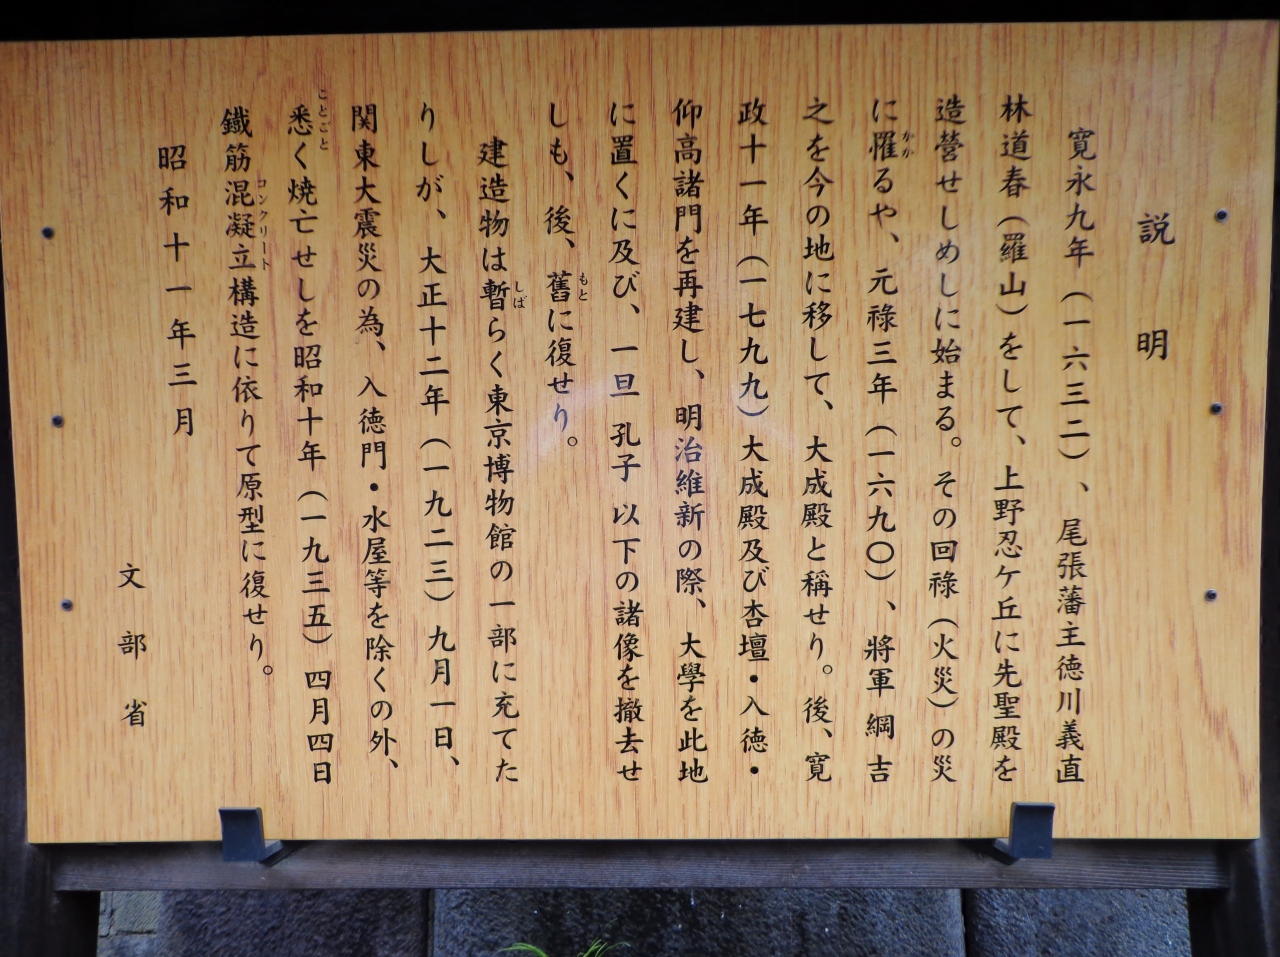 説明
寛永九年（一六三二）、尾張藩主徳川義直
林道春（羅山）をして、上野忍ケ丘に先聖殿を
造營せしめしに始まる。その回祿（火災）の災
に罹るや、元祿三年（一六九〇）、將軍綱吉
之を今の地に移して、大成殿と稱せり。後、寛
政十一年（一七九九）大成殿及び杏壇・入徳・
仰高諸門を再建し、明治維新の際、大學を此地
に置くに及び、一旦孔子以下の諸像を撤去せ
しも、後、舊に復せり。
建造物は暫らく東京博物館の一部に充てた
りしが、大正十二年（一九二三）九月一日、
関東大震災の為、入徳門・水屋等を除くの外、
悉く焼亡せしを昭和十年（一九三五）四月四日
鐵筋混凝立構造に依りて原型に復せり。
昭和十一年三月
文部省
かか
もと
しば
ことごと
コンクリート